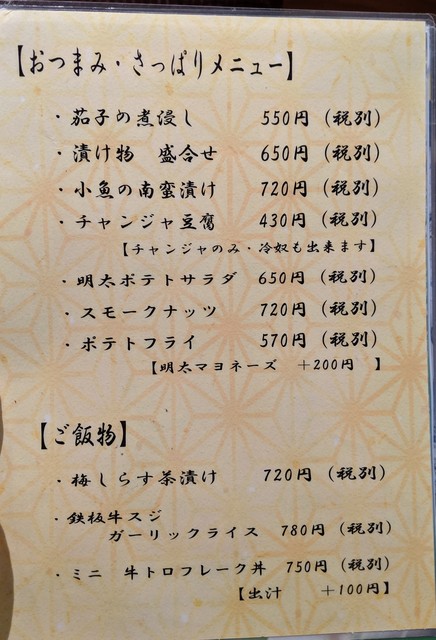 【おつまみ・さっぱりメニュー】
・茄子の煮浸し 550円（税別）
・漬け物 盛合せ 650円（税別）
・小魚の南蛮漬け 720円（税別）
・チャンジャ豆腐 430円（税別）
【チャンジャのみ・冷奴も出来ます】
・明太ポテトサラダ 650円（税別）
・スモークナッツ 720円（税別）
・ポテトフライ 570円（税別）
【明太マヨネーズ ＋200円 】
【ご飯物】
・梅しらす茶漬け 720円（税別）
・鉄板牛スジ
ガーリックライス 780円（税別）
・ミニ 牛トロフレーク丼 750円（税別）
【出汁 ＋100円】